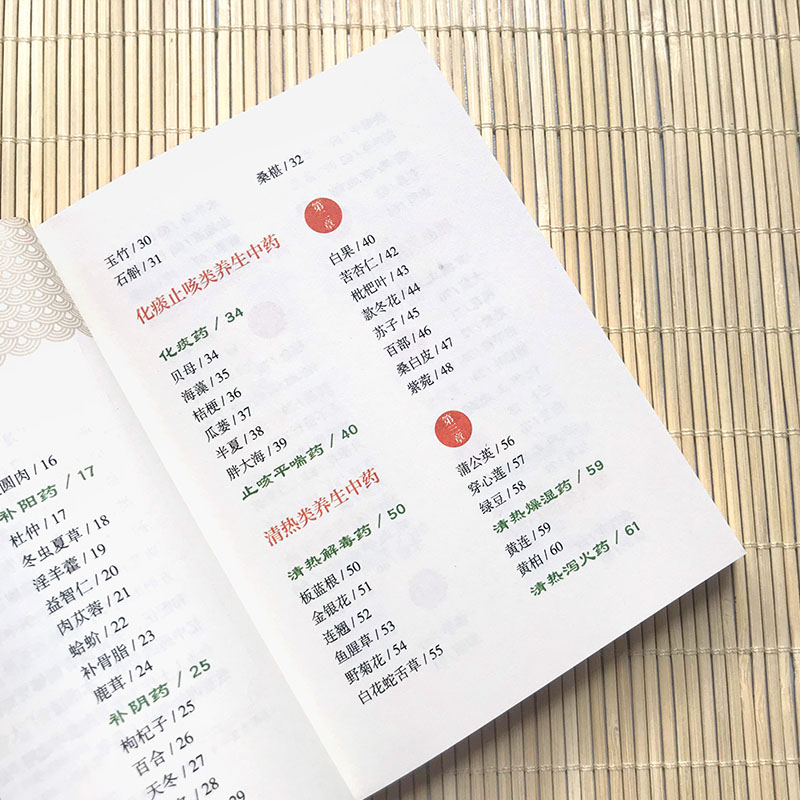 圆肉 / 16
补阳药 / 17
杜仲 / 17
冬虫夏草 / 18
淫羊藿 / 19
益智仁 / 20
肉苁蓉 / 21
蛤蚧 / 22
补骨脂 / 23
鹿茸 / 24
补阴药 / 25
枸杞子 / 25
百合 / 26
天冬 / 27
/ 28
29
玉竹 / 30
石斛 / 31
桑椹 / 32
第二章
化痰止咳类养生中药
化痰药 / 34
贝母 / 34
海藻 / 35
桔梗 / 36
瓜蒌 / 37
半夏 / 38
胖大海 / 39
止咳平喘药 / 40
白果 / 40
苦杏仁 / 42
枇杷叶 / 43
款冬花 / 44
苏子 / 45
百部 / 46
桑白皮 / 47
紫菀 / 48
第三章
清热类养生中药
清热解毒药 / 50
板蓝根 / 50
金银花 / 51
连翘 / 52
鱼腥草 / 53
野菊花 / 54
白花蛇舌草 / 55
蒲公英 / 56
穿心莲 / 57
绿豆 / 58
清热燥湿药 / 59
黄连 / 59
黄柏 / 60
清热泻火药 / 61